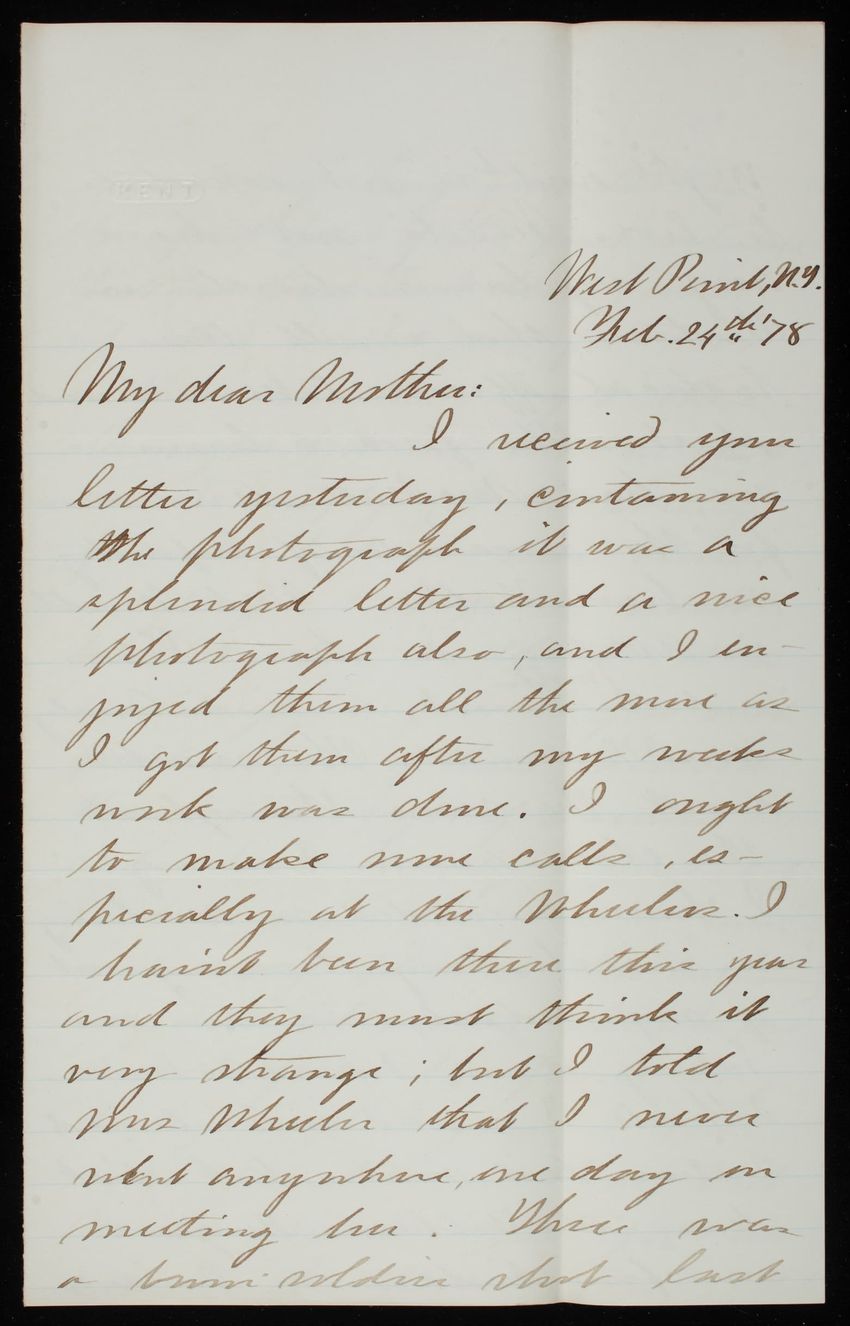 KENT
West Point, N.Y.
Feb. 24th '78
My dear Mother:
I received your
letter yesterday, containing
the photograph it was a
splendid letter and a nice
photograph also, and I en-
joyed them all the more as
I got them after my weeks
work was done. I ought
to make more calls, es-
pecially at the Wheelers. I
haint been there this year
and they must think it
very strange; but I told
Mrs Wheeler that I never
went anywhere, one day on
meeting her. There was
a soldier shot last